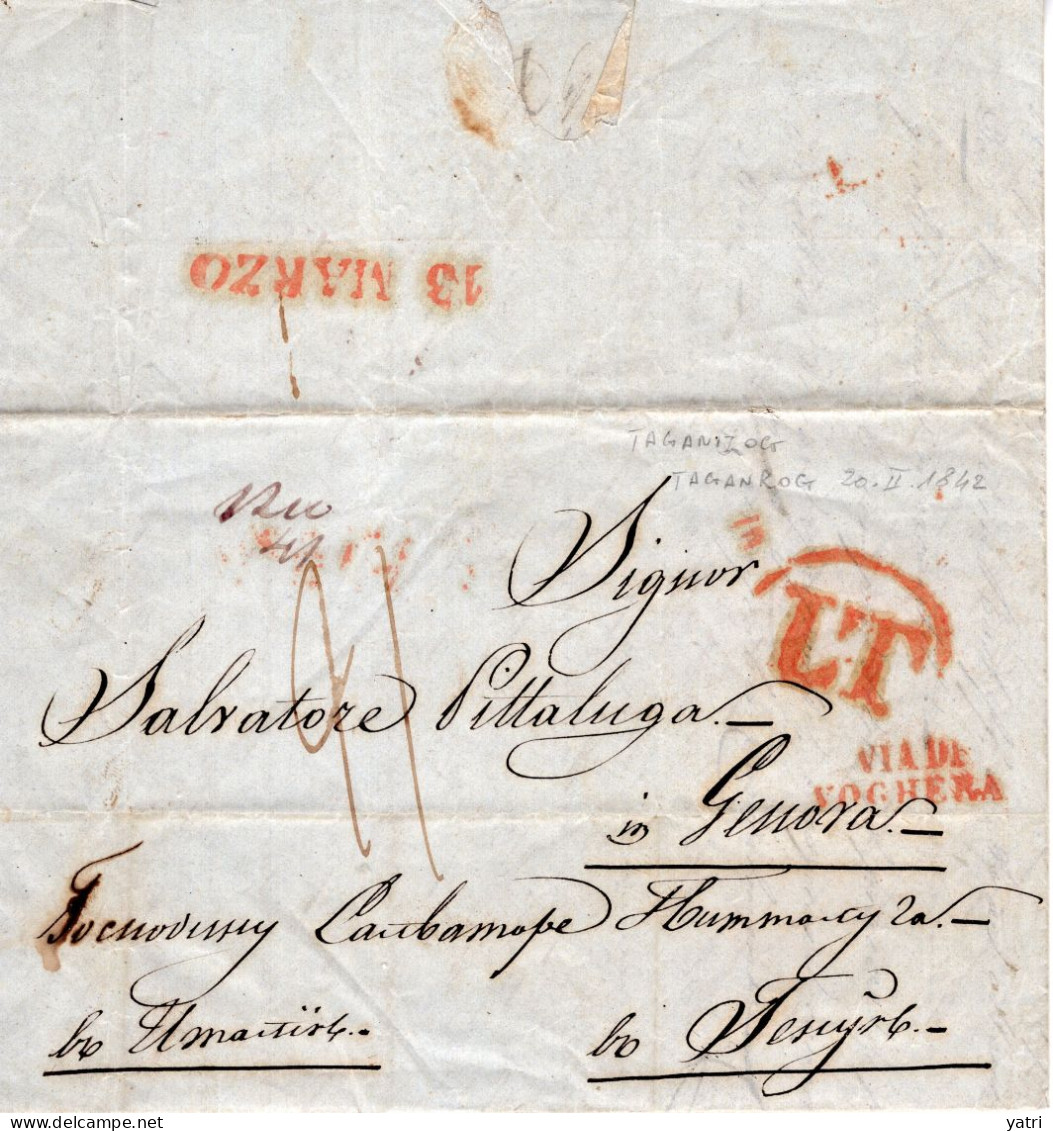 13 MARZO
TAGANROG
TAGANROG 20.II.1842
Signor
LT
Salvatore Pittaluga.
VIA DI
VOGHERA
in Genova.
Господину Сальваторе Питталуга.
въ Италіи.
въ Генуѣ.
yatri
www.delcampe.net